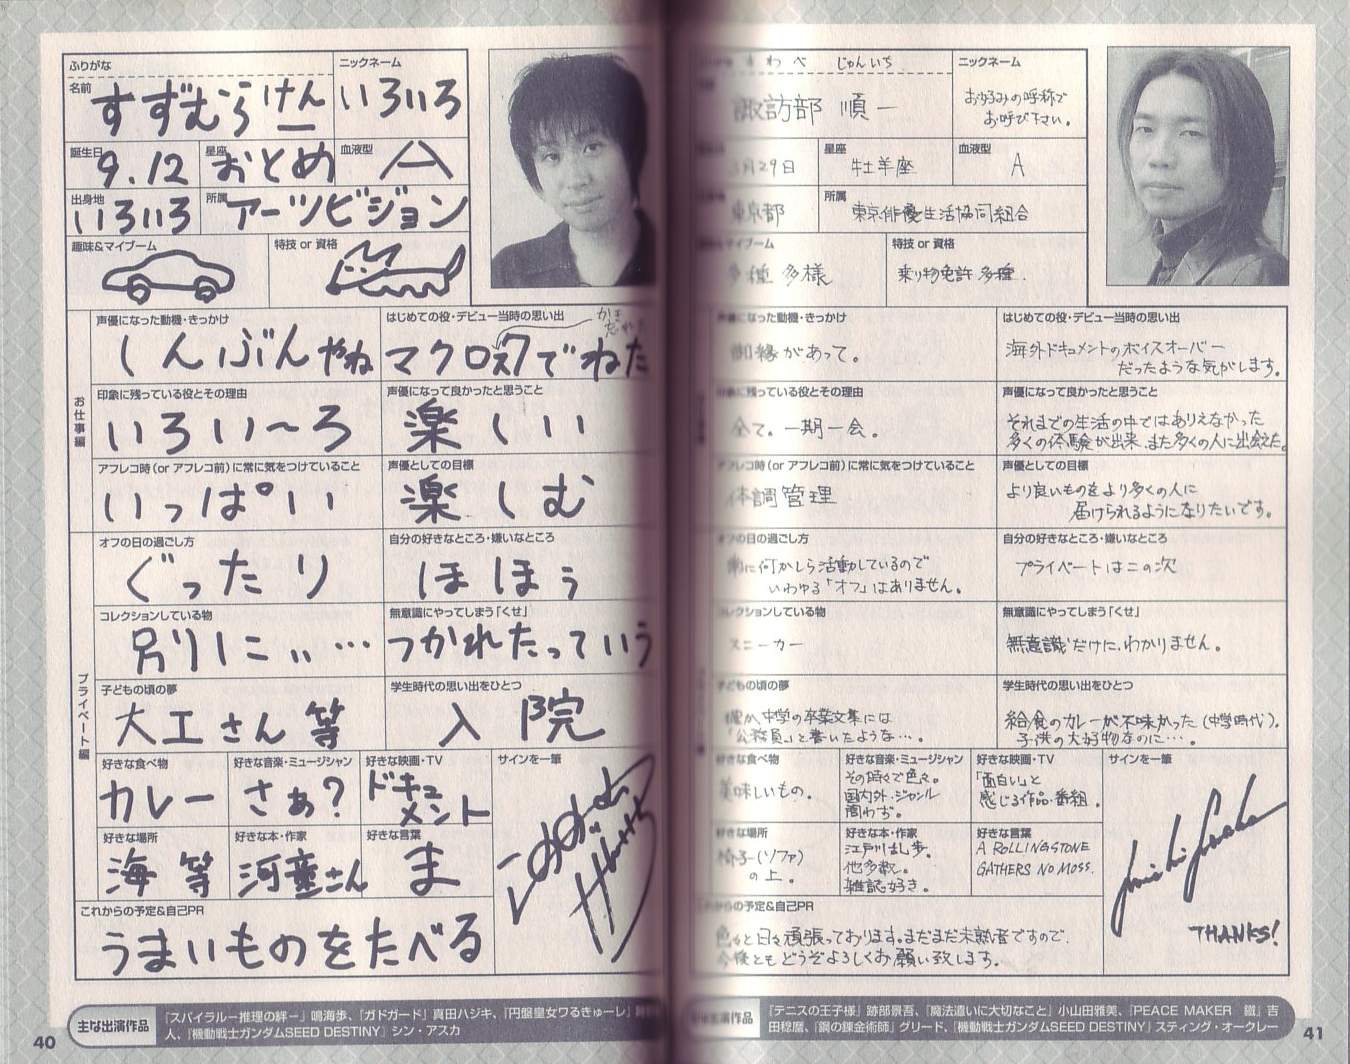 ふりがな
名前
すずむらけん一
ニックネーム
いろいろ
誕生日
9.12
星座
おとめ
血液型
A
出身地
いろいろ
所属
アーツビジョン
趣味&マイブーム
特技 or 資格
お仕事編
声優になった動機・きっかけ
しんぶんやね
はじめての役・デビュー当時の思い出
マクロス7でねた
印象に残っている役とその理由
いろい〜ろ
声優になって良かったと思うこと
楽しい
アフレコ時(or アフレコ前)に常に気をつけていること
いっぱい
声優としての目標
楽しむ
プライベート編
オフの日の過ごし方
ぐったり
自分の好きなところ・嫌いなところ
ほほぅ
コレクションしている物
別にぃ…
無意識にやってしまう「くせ」
つかれたっていう
子どもの頃の夢
大工さん等
学生時代の思い出をひとつ
入院
好きな食べ物
カレー
好きな音楽・ミュージシャン
さぁ?
好きな映画・TV
ドキュ
メント
サインを一筆
好きな場所
海等
好きな本・作家
河童さん
好きな言葉
ま
これからの予定&自己PR
うまいものをたべる
主な出演作品
『スパイラル−推理の絆−』鳴海歩、『ガドガード』真田ハジキ、『円盤皇女ワるきゅーレ』
人、『機動戦士ガンダムSEED DESTINY』シン・アスカ
40
すわべ じゅんいち
諏訪部 順一
ニックネーム
お好みの呼称で
お呼び下さい。
3月29日
星座
牡羊座
血液型
A
東京都
所属
東京俳優生活協同組合
マイブーム
多種多様
特技 or 資格
乗り物免許多種.
声優になった動機・きっかけ
御縁があって。
はじめての役・デビュー当時の思い出
海外ドキュメントのボイスオーバー
だったような気がします。
印象に残っている役とその理由
全て。一期一会。
声優になって良かったと思うこと
それまでの生活の中ではありえなかった
多くの体験が出来、また多くの人に出会えた。
アフレコ時(or アフレコ前)に常に気をつけていること
体調管理
声優としての目標
より良いものをより多くの人に
届けられるようになりたいです。
オフの日の過ごし方
常に何かしら活動しているので
いわゆる「オフ」はありません。
自分の好きなところ・嫌いなところ
プライベートは二の次
コレクションしている物
スニーカー
無意識にやってしまう「くせ」
無意識だけに、わかりません。
子どもの頃の夢
確か中学の卒業文集には
「公務員」と書いたような…。
学生時代の思い出をひとつ
給食のカレーが不味かった(中学時代)。
子供の大好物なのに…。
好きな食べ物
美味しいもの。
好きな音楽・ミュージシャン
その時々で色々。
国内外・ジャンル
問わず。
好きな映画・TV
「面白い」と
感じる作品・番組.
サインを一筆
THANKS!
好きな場所
椅子(ソファ)
の上。
好きな本・作家
江戸川乱歩.
他多数。
雑誌好き.
好きな言葉
A ROLLING STONE
GATHERS NO MOSS.
これからの予定&自己PR
色々と日々頑張っております。まだまだ未熟者ですので、
今後ともどうぞよろしくお願い致します。
主な出演作品
『テニスの王子様』跡部景吾、『魔法遣いに大切なこと』小山田雅美、『PEACE MAKER 鐵』吉
田稔麿、『鋼の錬金術師』グリード、『機動戦士ガンダムSEED DESTINY』スティング・オークレー
41